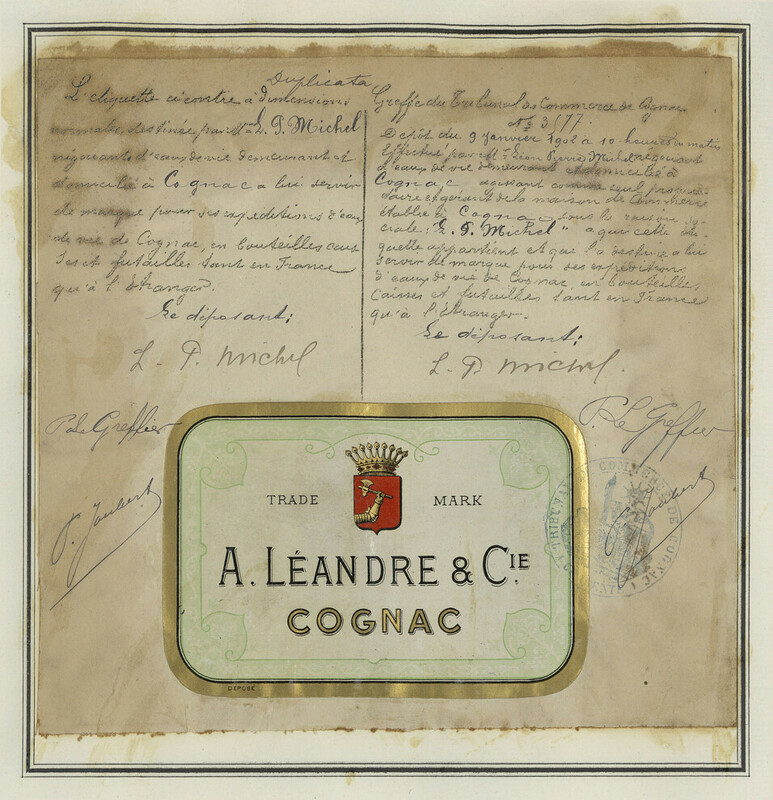 Duplicata
L'étiquette ci contre à dimensions
normales, destinée par Mr L. P. Michel
négociant d'eaux de vie demeurant et
domicilié à Cognac a lui servir
de marque pour ses expéditions d'eaux
de vie de Cognac, en bouteilles cais
ses et futailles tant en France
qu'à l'étranger.
Le déposant;
L. P. Michel
P. Le Greffier
P. Joubert
Greffe du Tribunal de Commerce de Cognac
No 3177.
Dépôt du 9 Janvier 1902 à 10 heures matin
Effectué par Mr Léon Pierre Michel négociant
d'eaux de vie demeurant et domicilié à
Cognac, agissant comme seul proprié-
taire et gérant de la maison de commerce
établie à Cognac sous la raison so-
ciale: "L. P. Michel" a qui cette éti-
quette appartient et qui l'a destinée a lui
servir de marque pour ses expéditions
d'eaux de vie de Cognac, en bouteilles,
caisses et futailles tant en France
qu'à l'étranger.
Le déposant;
L. P. Michel.
P. Le Greffier
P. Joubert
TRIBUNAL DE COMMERCE DE COGNAC
TRADE MARK
A. LÉANDRE & CIE
COGNAC
DÉPOSÉ